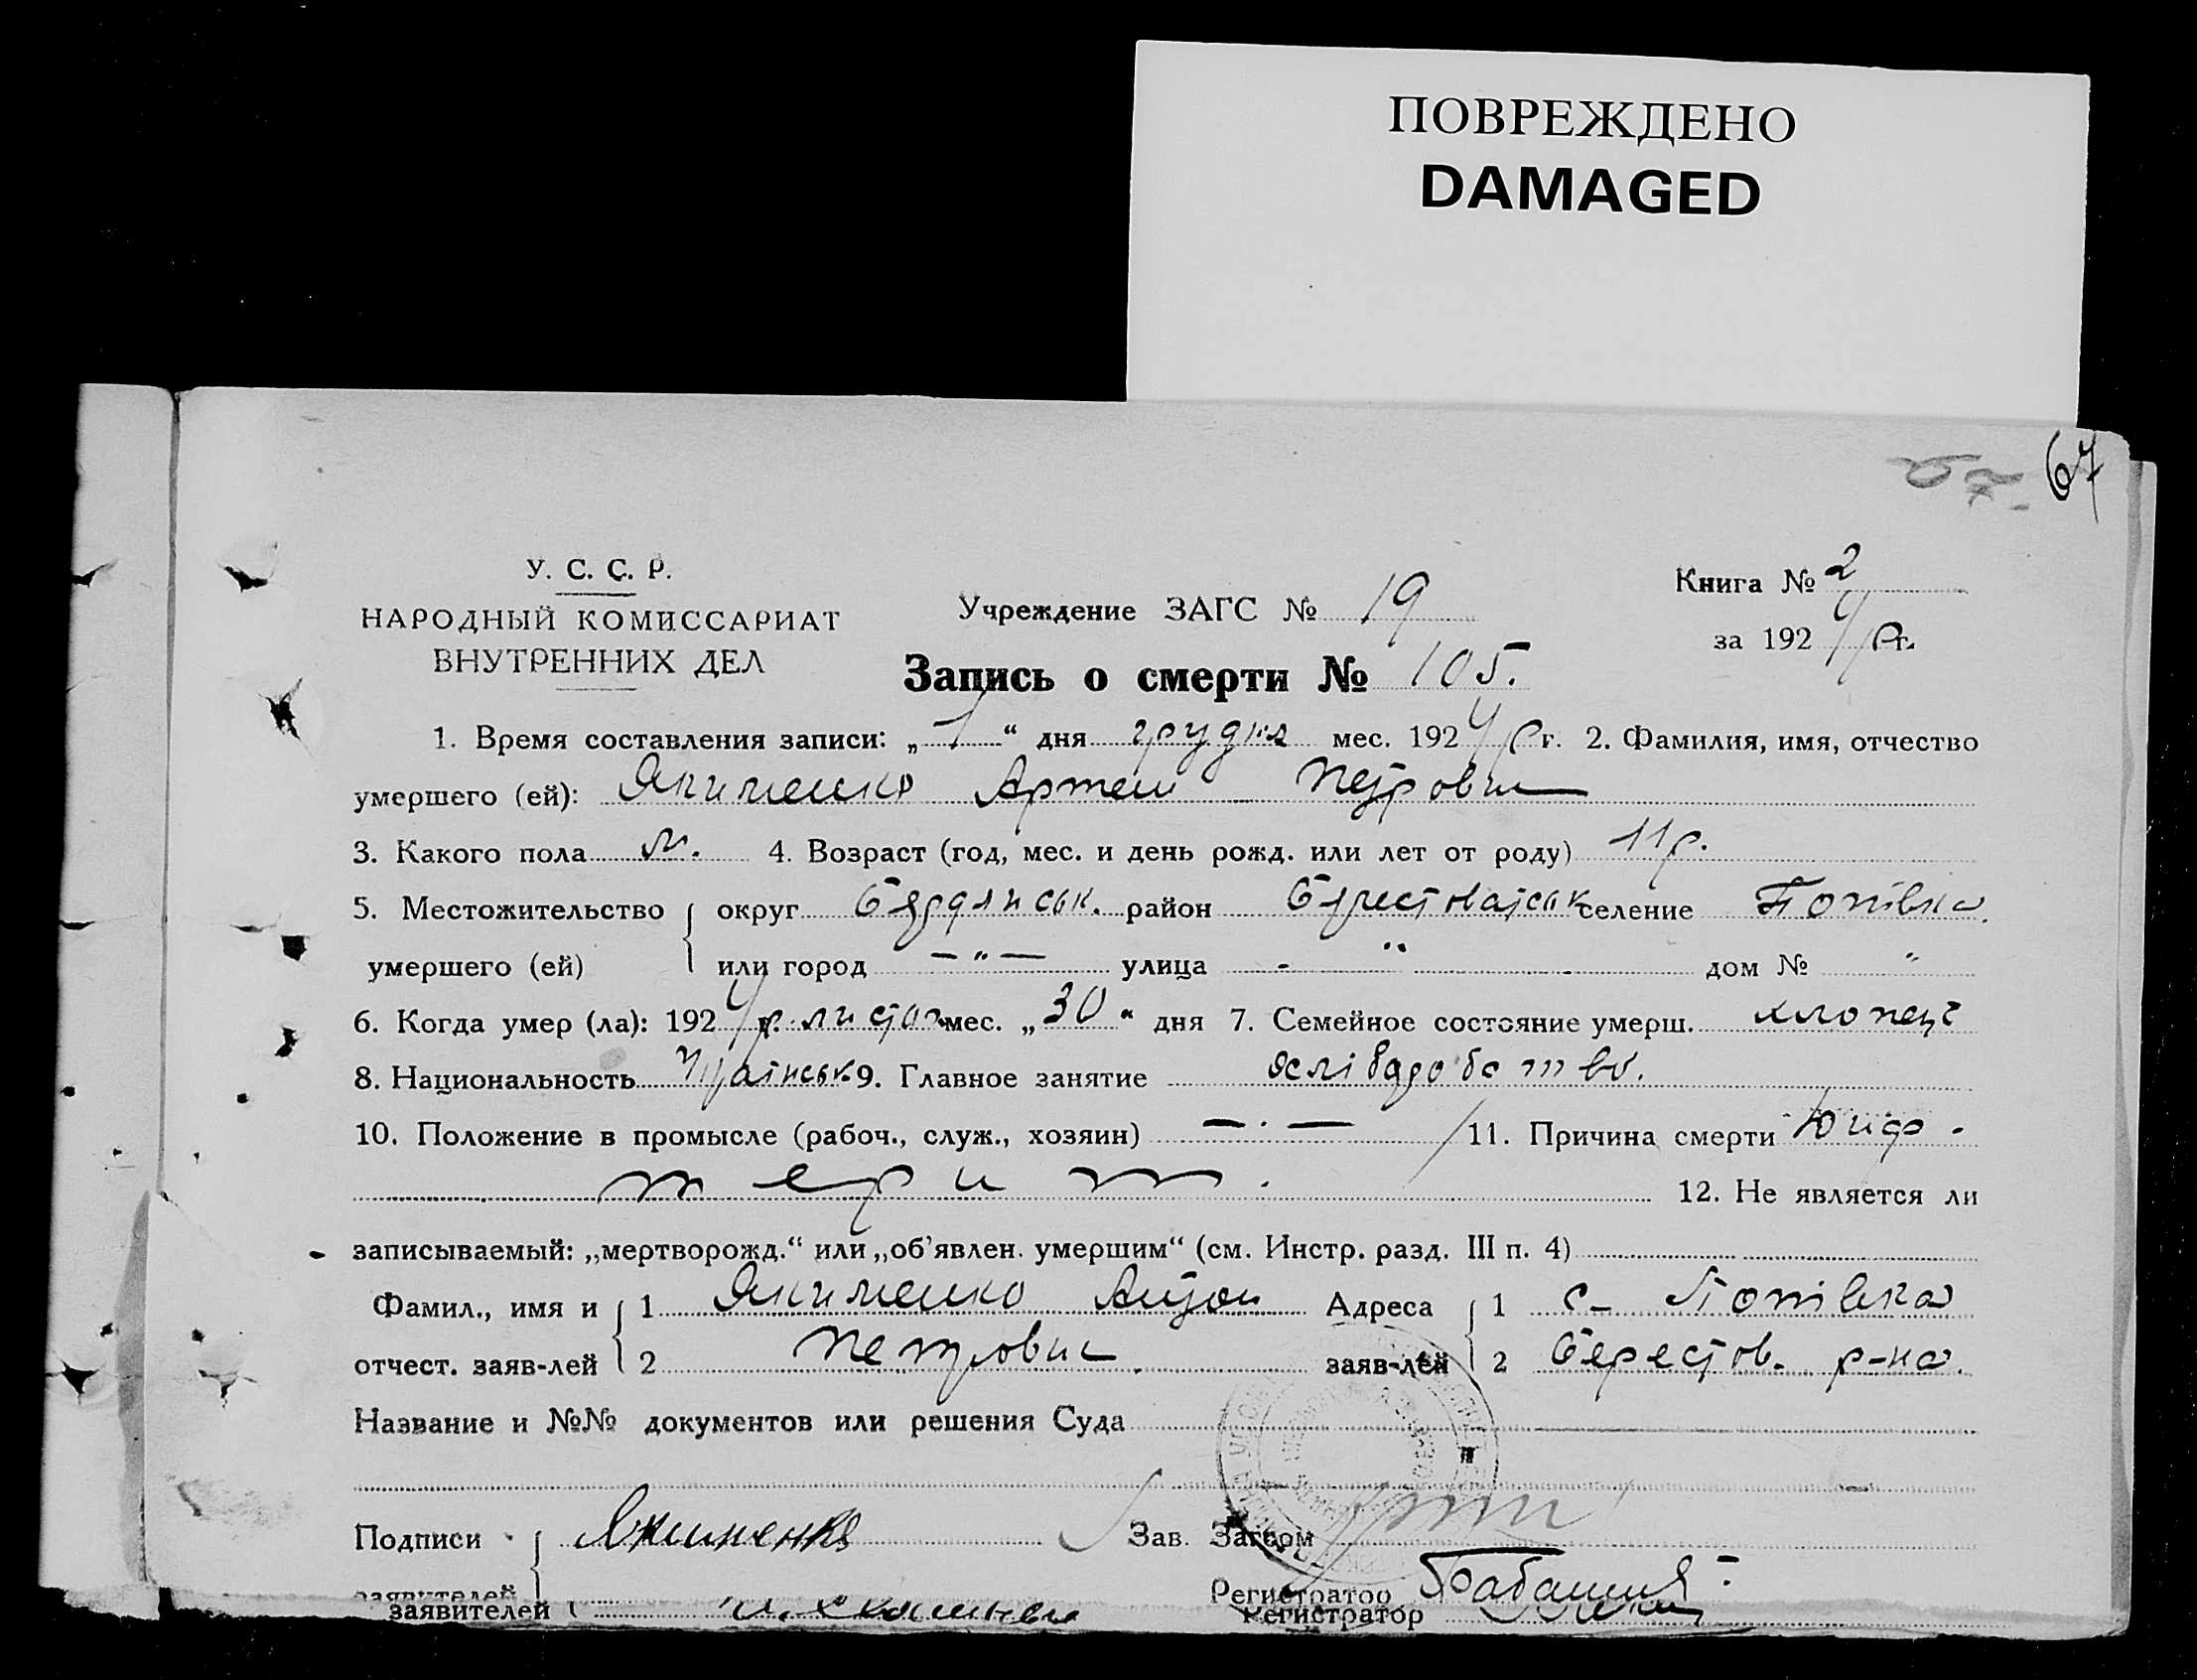 ПОВРЕЖДЕНО
DAMAGED
67
У. С. С. Р.
НАРОДНЫЙ КОМИССАРИАТ
ВНУТРЕННИХ ДЕЛ
Учреждение ЗАГС № 19
Книга № 2
за 1924 р г.
Запись о смерти № 105.
1. Время составления записи: „1“ дня грудня мес. 1924 р г. 2. Фамилия, имя, отчество
умершего (ей): Якименко Артем Петрович
3. Какого пола м. 4. Возраст (год, мес. и день рожд. или лет от роду) 11 р.
5. Местожительство округ Бердянськ. район Берестоватськ селение Попівка.
умершего (ей) или город — " — улица - " - дом № "
6. Когда умер (ла): 1924 р. листоп. мес. „30“ дня 7. Семейное состояние умерш. хлопець
8. Национальность Украінськ 9. Главное занятие
10. Положение в промысле (рабоч., служ., хозяин) — · — 11. Причина смерти Дифтерит.
12. Не является ли
записываемый: „мертворожд.“ или „об’явлен. умершим“ (см. Инстр. разд. III п. 4)
Фамил., имя и 1 Якименко Антон Адреса 1 с- Попівка
отчест. заяв-лей 2 Петрович заяв-лей 2 Берестов. р-на.
Название и №№ документов или решения Суда
Подписи Якименко Зав. Загсом
заявителей Регистратор
заявителей Регистратор